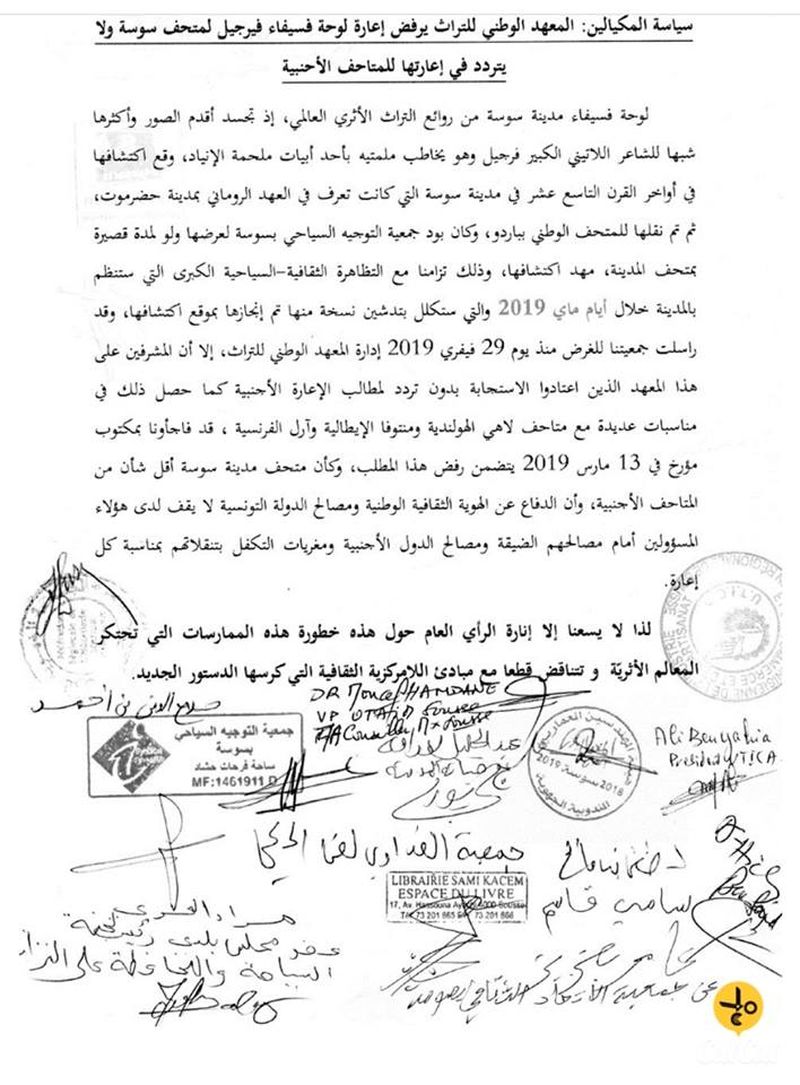 سياسة المكيالين: المعهد الوطني للتراث يرفض إعارة لوحة فسيفاء فيرجيل لمتحف سوسة ولا
يتردد في إعارتها للمتاحف الأجنبية
لوحة فسيفاء مدينة سوسة من روائع التراث الأثري العالمي، إذ تجسد أقدم الصور وأكثرها
شبها للشاعر اللاتيني الكبير فرجيل وهو يخاطب ملمتيه بأحد أبيات ملحمة الإنياد، وقع اكتشافها
في أواخر القرن التاسع عشر في مدينة سوسة التي كانت تعرف في العهد الروماني بمدينة حضرموت،
ثم تم نقلها للمتحف الوطني بباردو، وكان بود جمعية التوجيه السياحي بسوسة لعرضها ولو لمدة قصيرة
بمتحف المدينة، مهد اكتشافها، وذلك تزامنا مع التظاهرة الثقافية-السياحية الكبرى التي ستنظم
بالمدينة خلال أيام ماي 2019 والتي ستكلل بتدشين نسخة منها تم إنجازها بموقع اكتشافها، وقد
راسلت جمعيتنا للغرض منذ يوم 29 فيفري 2019 إدارة المعهد الوطني للتراث، إلا أن المشرفين على
هذا المعهد الذين اعتادوا الاستجابة بدون تردد لمطالب الإعارة الأجنبية كما حصل ذلك في
مناسبات عديدة مع متاحف لاهي الهولندية ومنتوفا الإيطالية وآرل الفرنسية ، قد فاجأونا بمكتوب
مؤرخ في 13 مارس 2019 يتضمن رفض هذا المطلب، وكأن متحف مدينة سوسة أقل شأن من
المتاحف الأجنبية، وأن الدفاع عن الهوية الثقافية الوطنية ومصالح الدولة التونسية لا يقف لدى هؤلاء
المسؤولين أمام مصالحهم الضيقة ومصالح الدول الأجنبية ومغريات التكفل بتنقلاتهم بمناسبة كل
إعارة.
لذا لا يسعنا إلا إنارة الرأي العام حول هذه خطورة هذه الممارسات التي تحتكر
المعالم الأثريّة و تتناقض قطعا مع مبادئ اللامركزية الثقافية التي كرسها الدستور الجديد.
صلاح الدين بن أحمد
DR Moncef HAMDANE
جمعية التوجيه السياحي
بسوسة
ساحة فرحات حشاد
MF:1461911 D
2018 سوسة 2019
Ali Benyahia
President UTICA
جمعية
LIBRAIRIE SAMI KACEM
ESPACE DU LIVRE
سامي قاسم
مراد
عضو مجلس بلدي
السياحة والمحافظة على